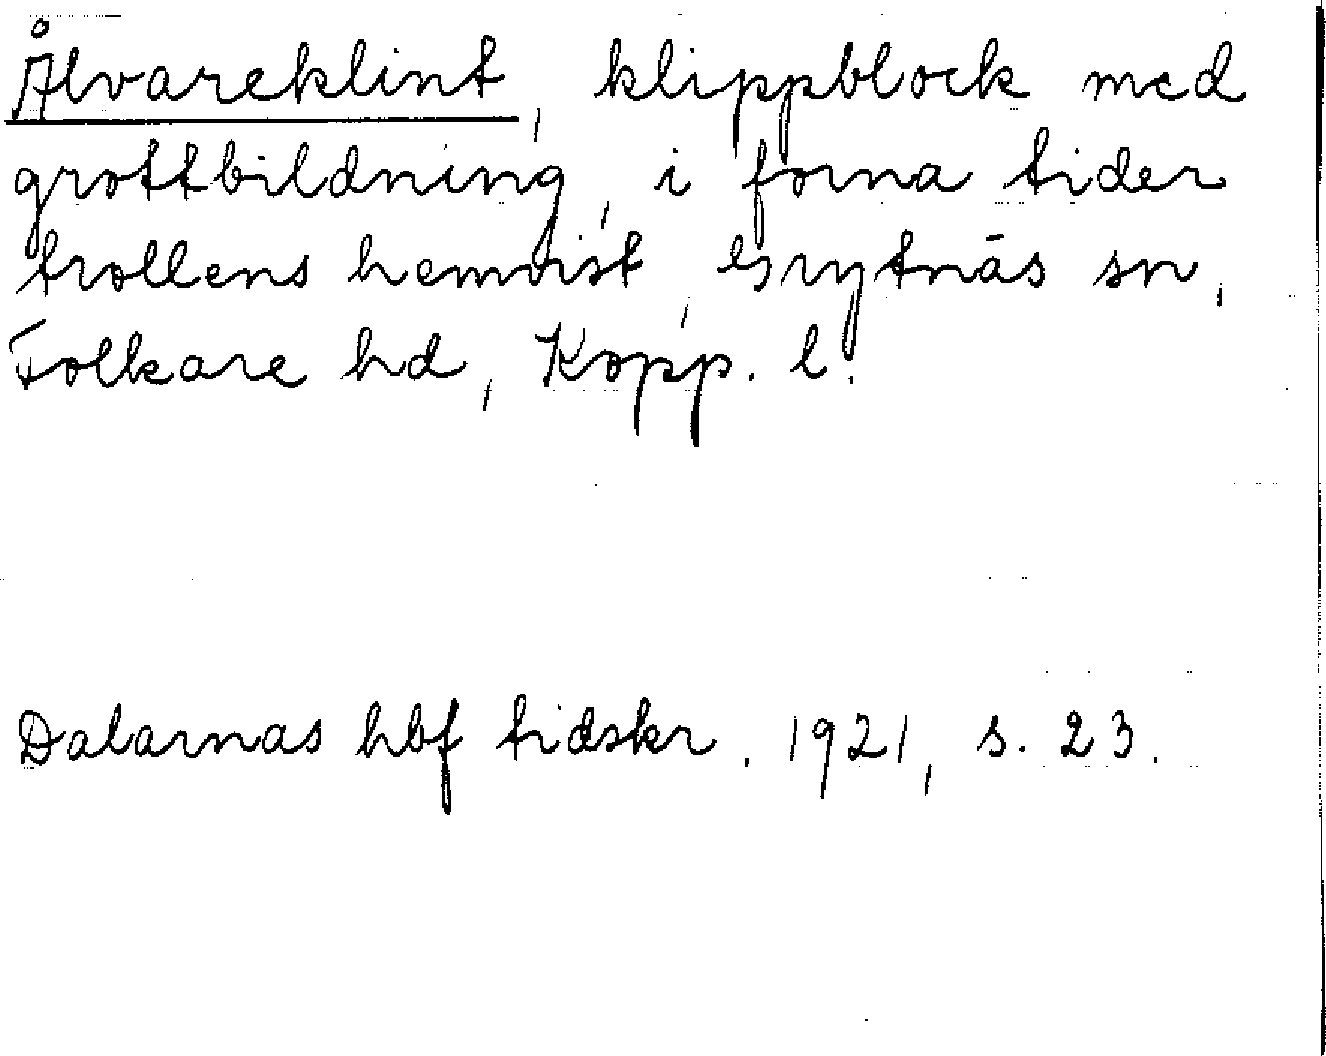 Ålvareklint, klippblock med
grottbildning, i forna tider
trollens hemvist, Grytnäs sn,
Folkare hd, Kopp. l.
Dalarnas hbf tidskr. 1921, s. 23.